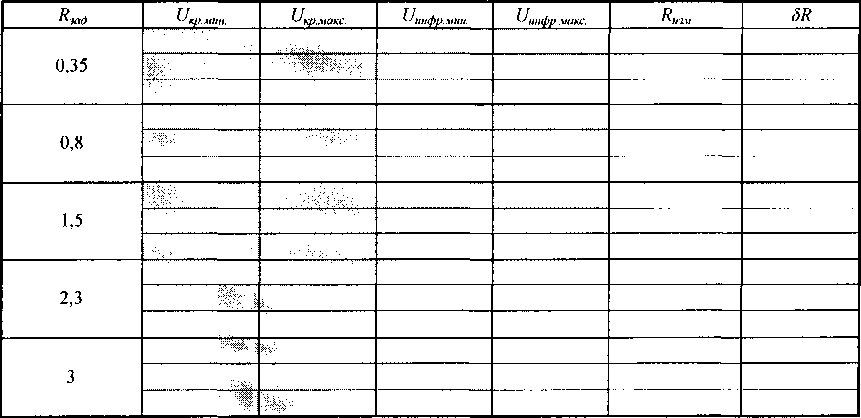 Rзад Uкр.мин. Uкр.макс. Uинфр.мин. Uинфр.макс. Rизм δR
0,35
0,8
1,5
2,3
3